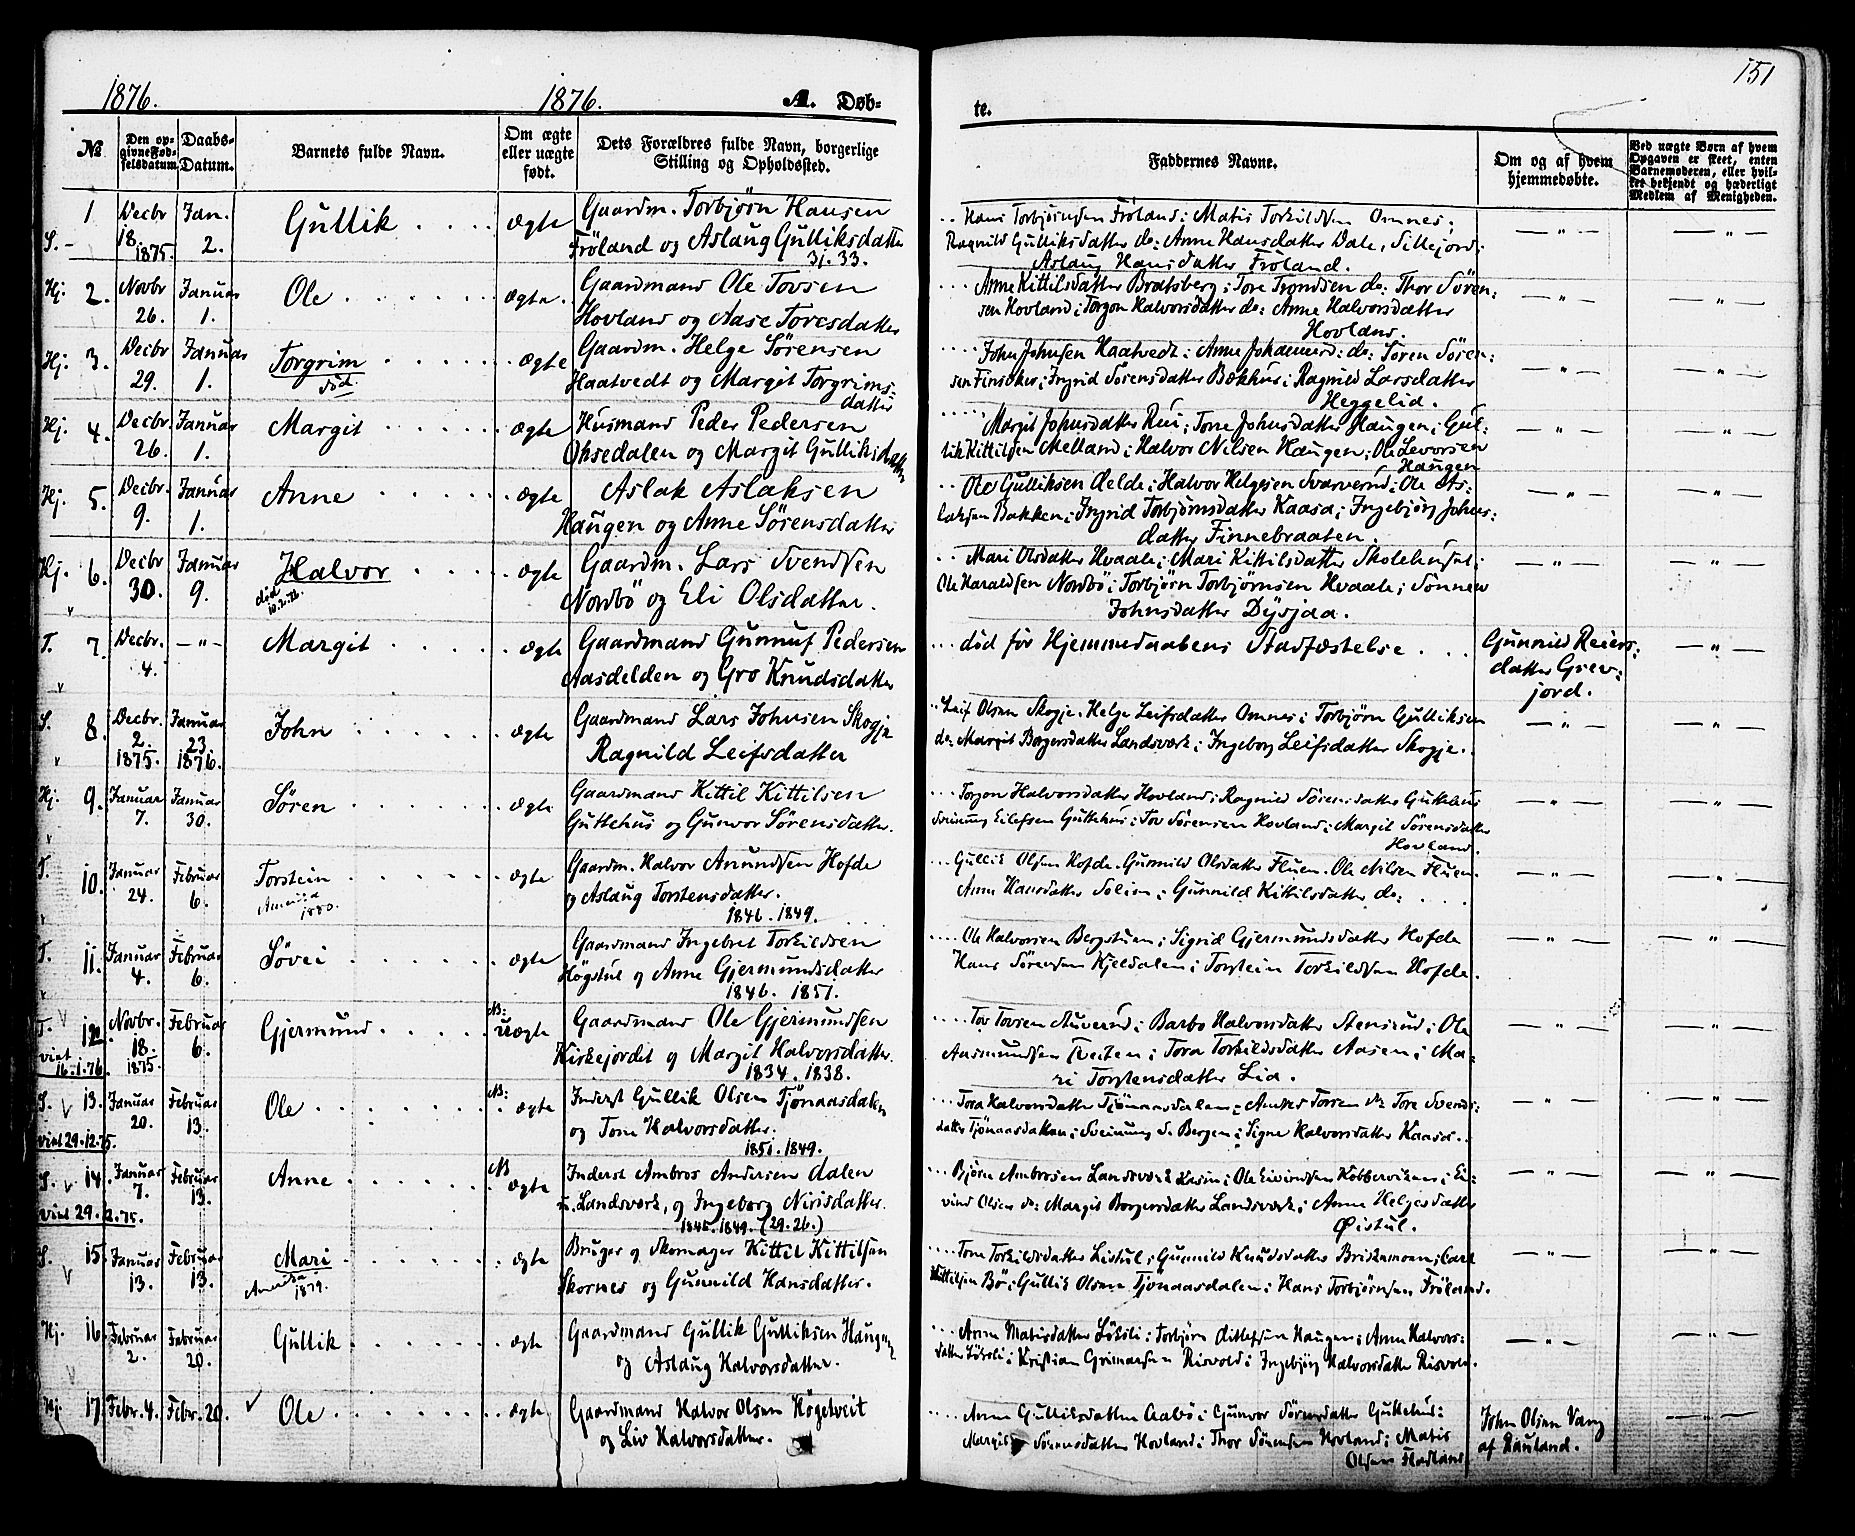 1876. 1876. A. Døb-
№ Den opgivne Fødselsdatum. Daabs-Datum. Barnets fulde Navn. Om ægte eller uægte født. Dets Forældres fulde Navn, borgerlige Stilling og Opholdssted.
1 Decbr Jan. Gullik ægte Gaardm. Torbjørn Hansen
S. 18. 1875. 2. Frøland og Aslaug Gulliksdatter
31. 33.
Hj. 2. Novbr Januar Ole ægte. Gaardmand Ole Tovsen
26. 1. Hovland og Aase Tovesdatter
Hj. 3. Decbr Januar Torgrim ægte Gaardm. Helge Sørensen
29. 1. død. Haatvedt og Margit Torgrims:
datter
Hj. 4. Decbr. Januar Margit ægte Husmand Peder Pedersen
26. 1. Oksedalen og Margit Gulliksdatter
Hj. 5. Decbr. Januar Anne ægte Aslak Aslaksen
9. 1. Haugen og Anne Sørensdatter
Hj. 6. Decbr Januar Halvor ægte Gaardm. Lars Svendsen
30. 9. død Nordbö og Eli Olsdatter.
T. 7. Decbr. —"— Margit ægte Gaardmand Gunnuf Pedersen
4. Aasdelden og Gro Knudsdatter
S. 8. Decbr. Januar John ægte Gaardmand Lars Johnsen Skogje
2. 1875. 23. 1876. Ragnild Leifsdatter
Hj. 9. Januar Januar Søren ægte Gaardmand Kittil Kittilsen
7. 30. Guttehus og Gunvor Sørensdatter.
T. 10. Januar Februar Torstein ægte Gaardm. Halvor Anundsen Hofde
24. 6. America 1880. og Aslaug Torstensdatter.
1846. 1849.
T. 11. Januar Februar Søvei ægte Gaardmand Ingebret Torkildsen
4. 6. Høgstul og Anne Gjermundsdatter
1846. 1851.
T. 12. Novbr. Februar Gjermund NB: uægte Gaardmand Ole Gjermundsen
viet 16.1.76. 18. 1875. 6. Kirkejordet og Margit Halvorsdatter.
1834. 1838.
S. 13. Januar Februar Ole NB: ægte Inderst Gullik Olsen Tjønaasdalen
viet 29.12.75. 20. 13. og Tone Halvorsdatter.
1851. 1849.
S. 14. Januar Februar Anne NB ægte Inderst Ambros Andersen Dalen
viet 29.12.75. 7. 13. u. Landsværk, og Ingeborg Nirisdatter.
1845. 1849. (29. 26.)
S. 15. Januar Februar Mari ægte Bruger og Skomager Kittil Kittilsen
13. 13. Amerika 1879. Skornes og Gunnild Hansdatter.
Hj. 16. Februar Februar Gullik ægte Gaardmand Gullik Gulliksen Haugen
2. 20. og Aslaug Halvorsdatter.
Hj. 17. Febr. 4. Febr. 20. Ole ægte Gaardmand Halvor Olsen Høgetveit
og Liv Halvorsdatter.
151
te.
Faddernes Navne. Om og af hvem hjemmedøbte. Ved uægte Børn af hvem Opgaven er skeet, enten Barnemoderen, eller hvilket bekjendt og hæderligt Medlem af Menigheden.
Hans Torbjørnsen Frøland; Matis Torkildsen Omnes;
Ragnild Gulliksdatter do: Anne Hansdatter Dale, Sillejord;
Aslaug Hansdatter Frøland.
Anne Kittilsdatter Bratsberg; Tore Trondsen do: Thor Søren:
sen Hovland; Torgon Halvorsdatter do: Anne Halvorsdatter
Hovland.
John Johnsen Haatvedt; do: Søren Søren:
sen; Ingrid Sørensdatter Bækhus; Ragnild Larsdatter
Heggelid.
Margit Johnsdatter Rui; Tone Johnsdatter Haugen; Gul:
lik Kittilsen Melland; Halvor Nilsen Haugen; Ole Levorsen
Haugen
Ole Gulliksen Oelde; Halvor Helgesen Svarverud; Ole As:
laksen Bakken; Ingrid Torbjørnsdatter Kaasa; Ingebjørg Johns:
datter Finnebraaten.
Mari Olsdatter Hvaale; Mari Kittilsdatter Skolehuset;
Ole Haraldsen Nordbö; Torbjørn Torbjørnsen Hvaale; Sønnev
Johnsdatter Dysjaa.
død før Hjemmedaabens Stadfæstelse. Gunnild Reiers:
datter Grev:
jord.
Leif Olsen Skogje. Helge Leifsdatter Omnes; Torbjørn Gulliksen
do: Margit Borgersdatter Landsværk; Ingeborg Leifsdatter Skogje.
Torgon Halvorsdatter Hovland; Ragnild Sørensdatter Guttehus
Sveinung Eilefsen Guttehus; Tov Sørensen Hovland; Margit Sørensdatter
Hovland.
Gullik Olsen Hofde. Gunnild Olsdatter Fluen. Ole Nilsen Fluen.
Anne Hansdatter Solien; Gunnild Kittilsdatter do:
Ole Halvorsen Bergstuen; Sigrid Gjermundsdatter Hofde
Hans Sørensen Kjeldalen; Torstein Torkildsen Hofde.
Tov Tovsen Auverud; Barbo Halvorsdatter Stensrud; Ole
Aasmundsen Tveiten; Tora Torkildsdatter Aasen; Ma:
ri Torstensdatter Lid.
Tora Halvorsdatter Tjønaasdalen; Tore Svends:
datter Tjønaasdalen; Sveinung Bergen; Signe Halvorsdatter Kaasa.
Bjørn Ambrosen Landsværk; Ole Eivindsen Kobbervikens; Ei:
vind Olsen do: Margit Borgersdatter Landsværk; Anne Helgesdatter
Øistul.
Tone Torkildsdatter Listul; Gunnild Knudsdatter Briskemoen; Carl
Kittilsen Bø; Gullik Olsen Tjønaasdalen; Hans Torbjørnsen Frøland.
Anne Matisdatter Løksli; Torbjørn Ditlefsen Haugen; Anne Halvors:
datter Løksli; Kristian Risvold; Ingebjørg Halvorsdatter Risvold.
Anne Gulliksdatter Aabø; Gunvor Sørensdatter Guttehus: John Olsen Vang
Margit Sørensdatter Hovland; Thor Sørensen Hovland; Matis af Rauland.
Olsen Fladland